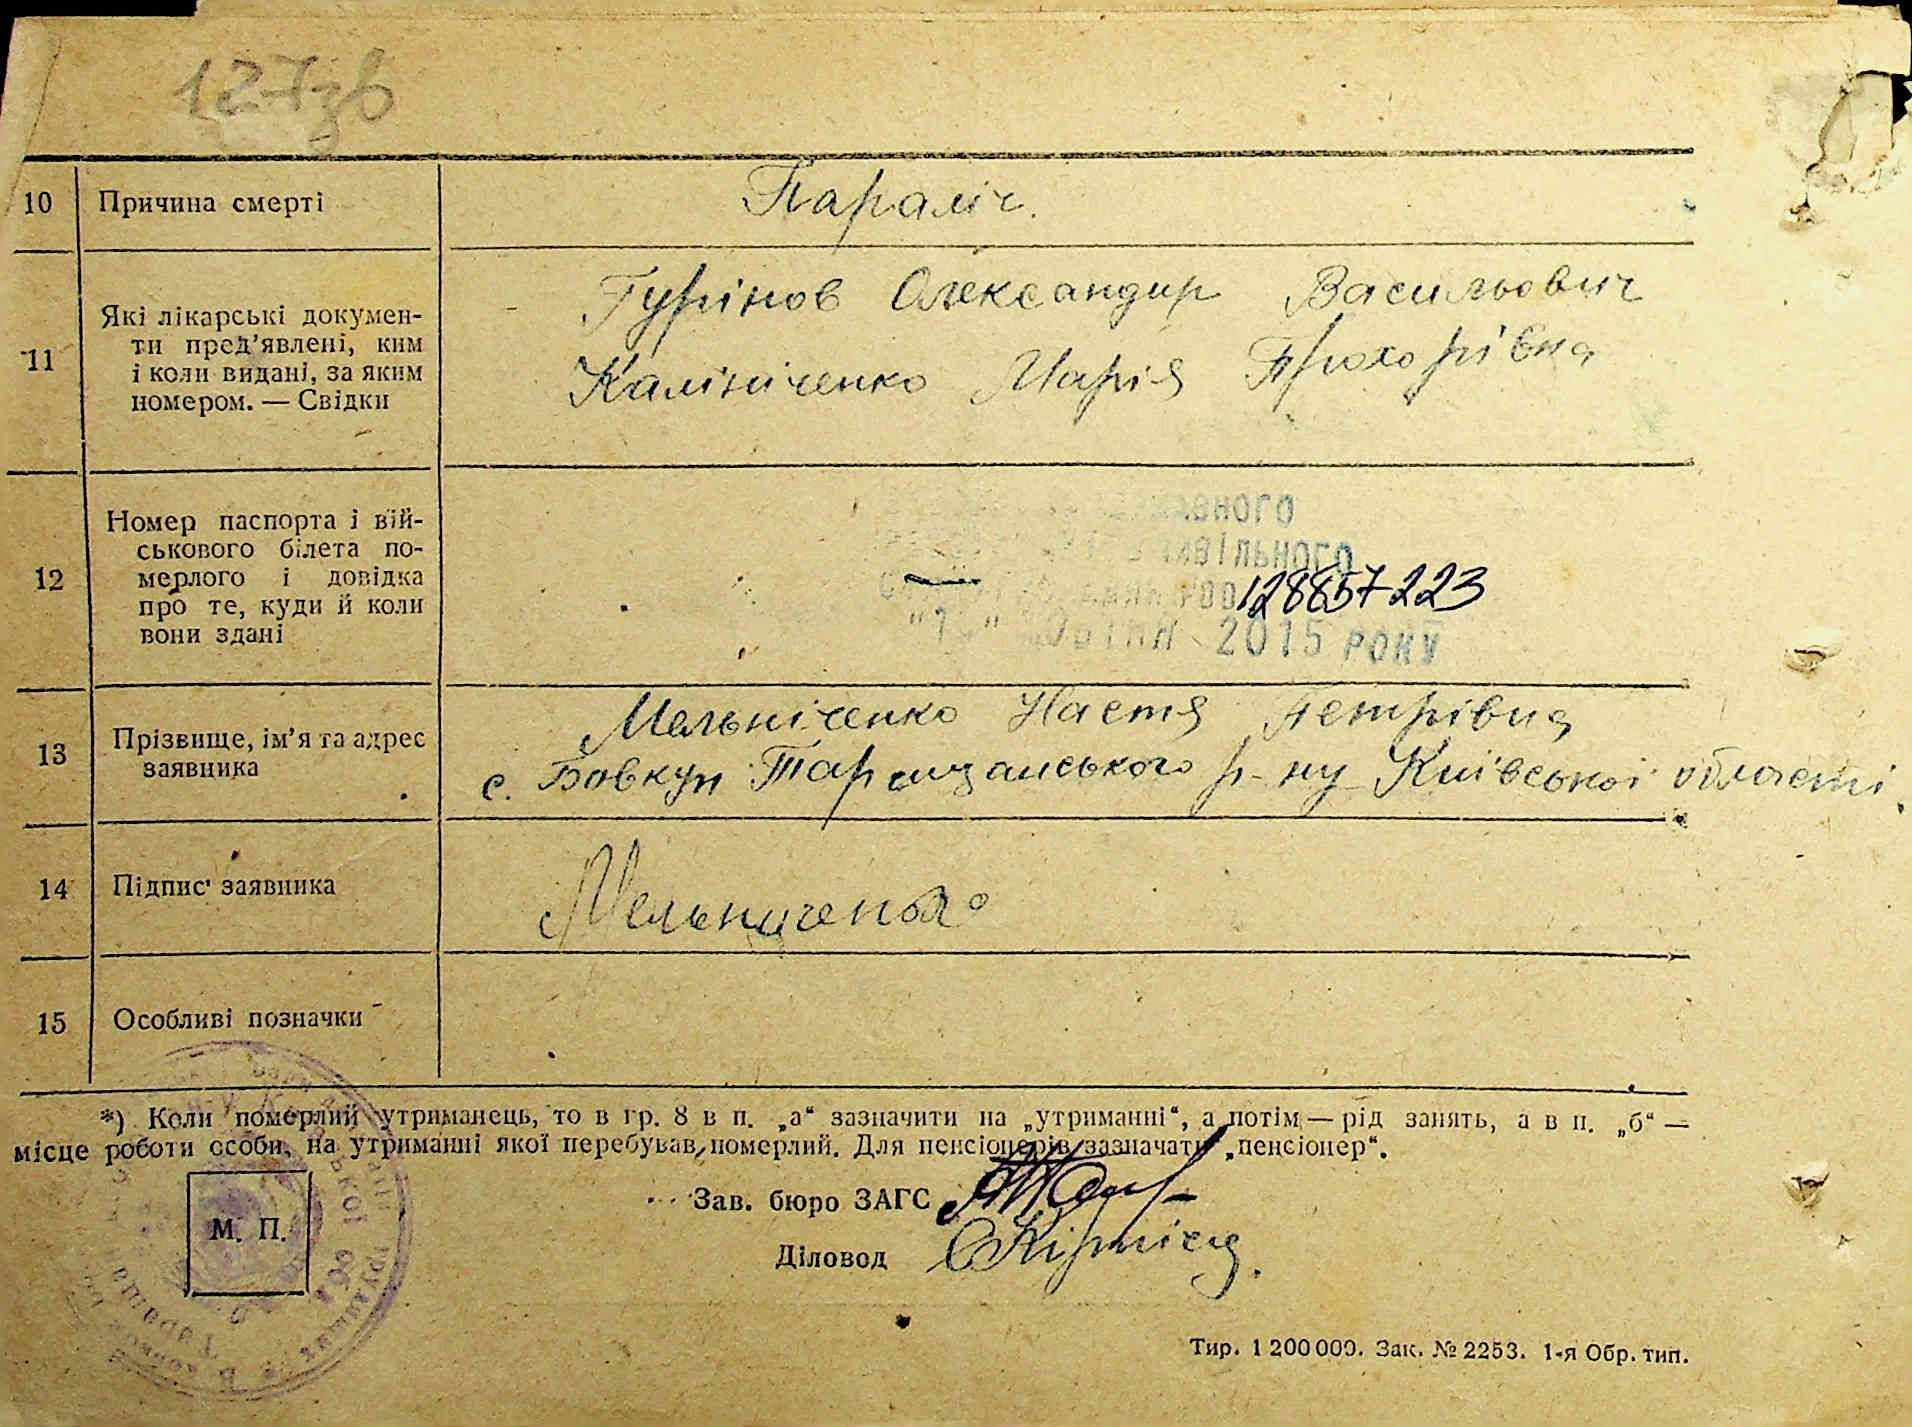 127зв
10 Причина смерті Параліч.
11 Які лікарські докумен-
ти пред’явлені, ким
і коли видані, за яким
номером. — Свідки
Гурінов Олександир Васильович
Калініченко Марія Прохорівна
12 Номер паспорта і вій-
ськового білета по-
мерлого і довідка
про те, куди й коли
вони здані
—
128857223
2015 РОКУ
13 Прізвище, ім’я та адрес
заявника
Мельніченко Настя Петрівна
с. Бовкун Таращанського р-ну Київської області.
14 Підпис заявника Мельниченко
15 Особливі позначки
*) Коли померлий утриманець, то в гр. 8 в п. „а“ зазначити на „утриманні“, а потім — рід занять, а в п. „б“ —
місце роботи особи, на утриманні якої перебував померлий. Для пенсіонерів зазначати „пенсіонер“.
М. П.
Зав. бюро ЗАГС
Діловод
Тир. 1 200 000. Зак. № 2253. 1-я Обр. тип.